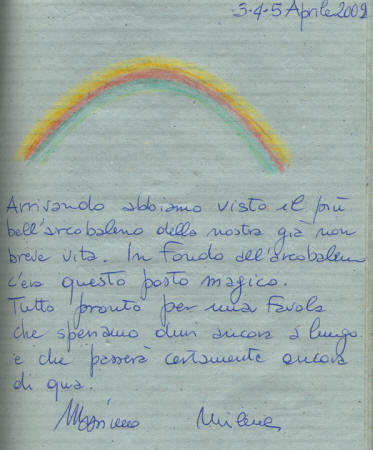 3-4-5 Aprile 2009
Arrivando abbiamo visto il più
bell'arcobaleno della nostra già non
breve vita. In fondo all'arcobaleno
c'era questo posto magico.
Tutto pronto per una favola
che speriamo duri ancora a lungo
e che passerà certamente ancora
di qua.
Massimo Milena